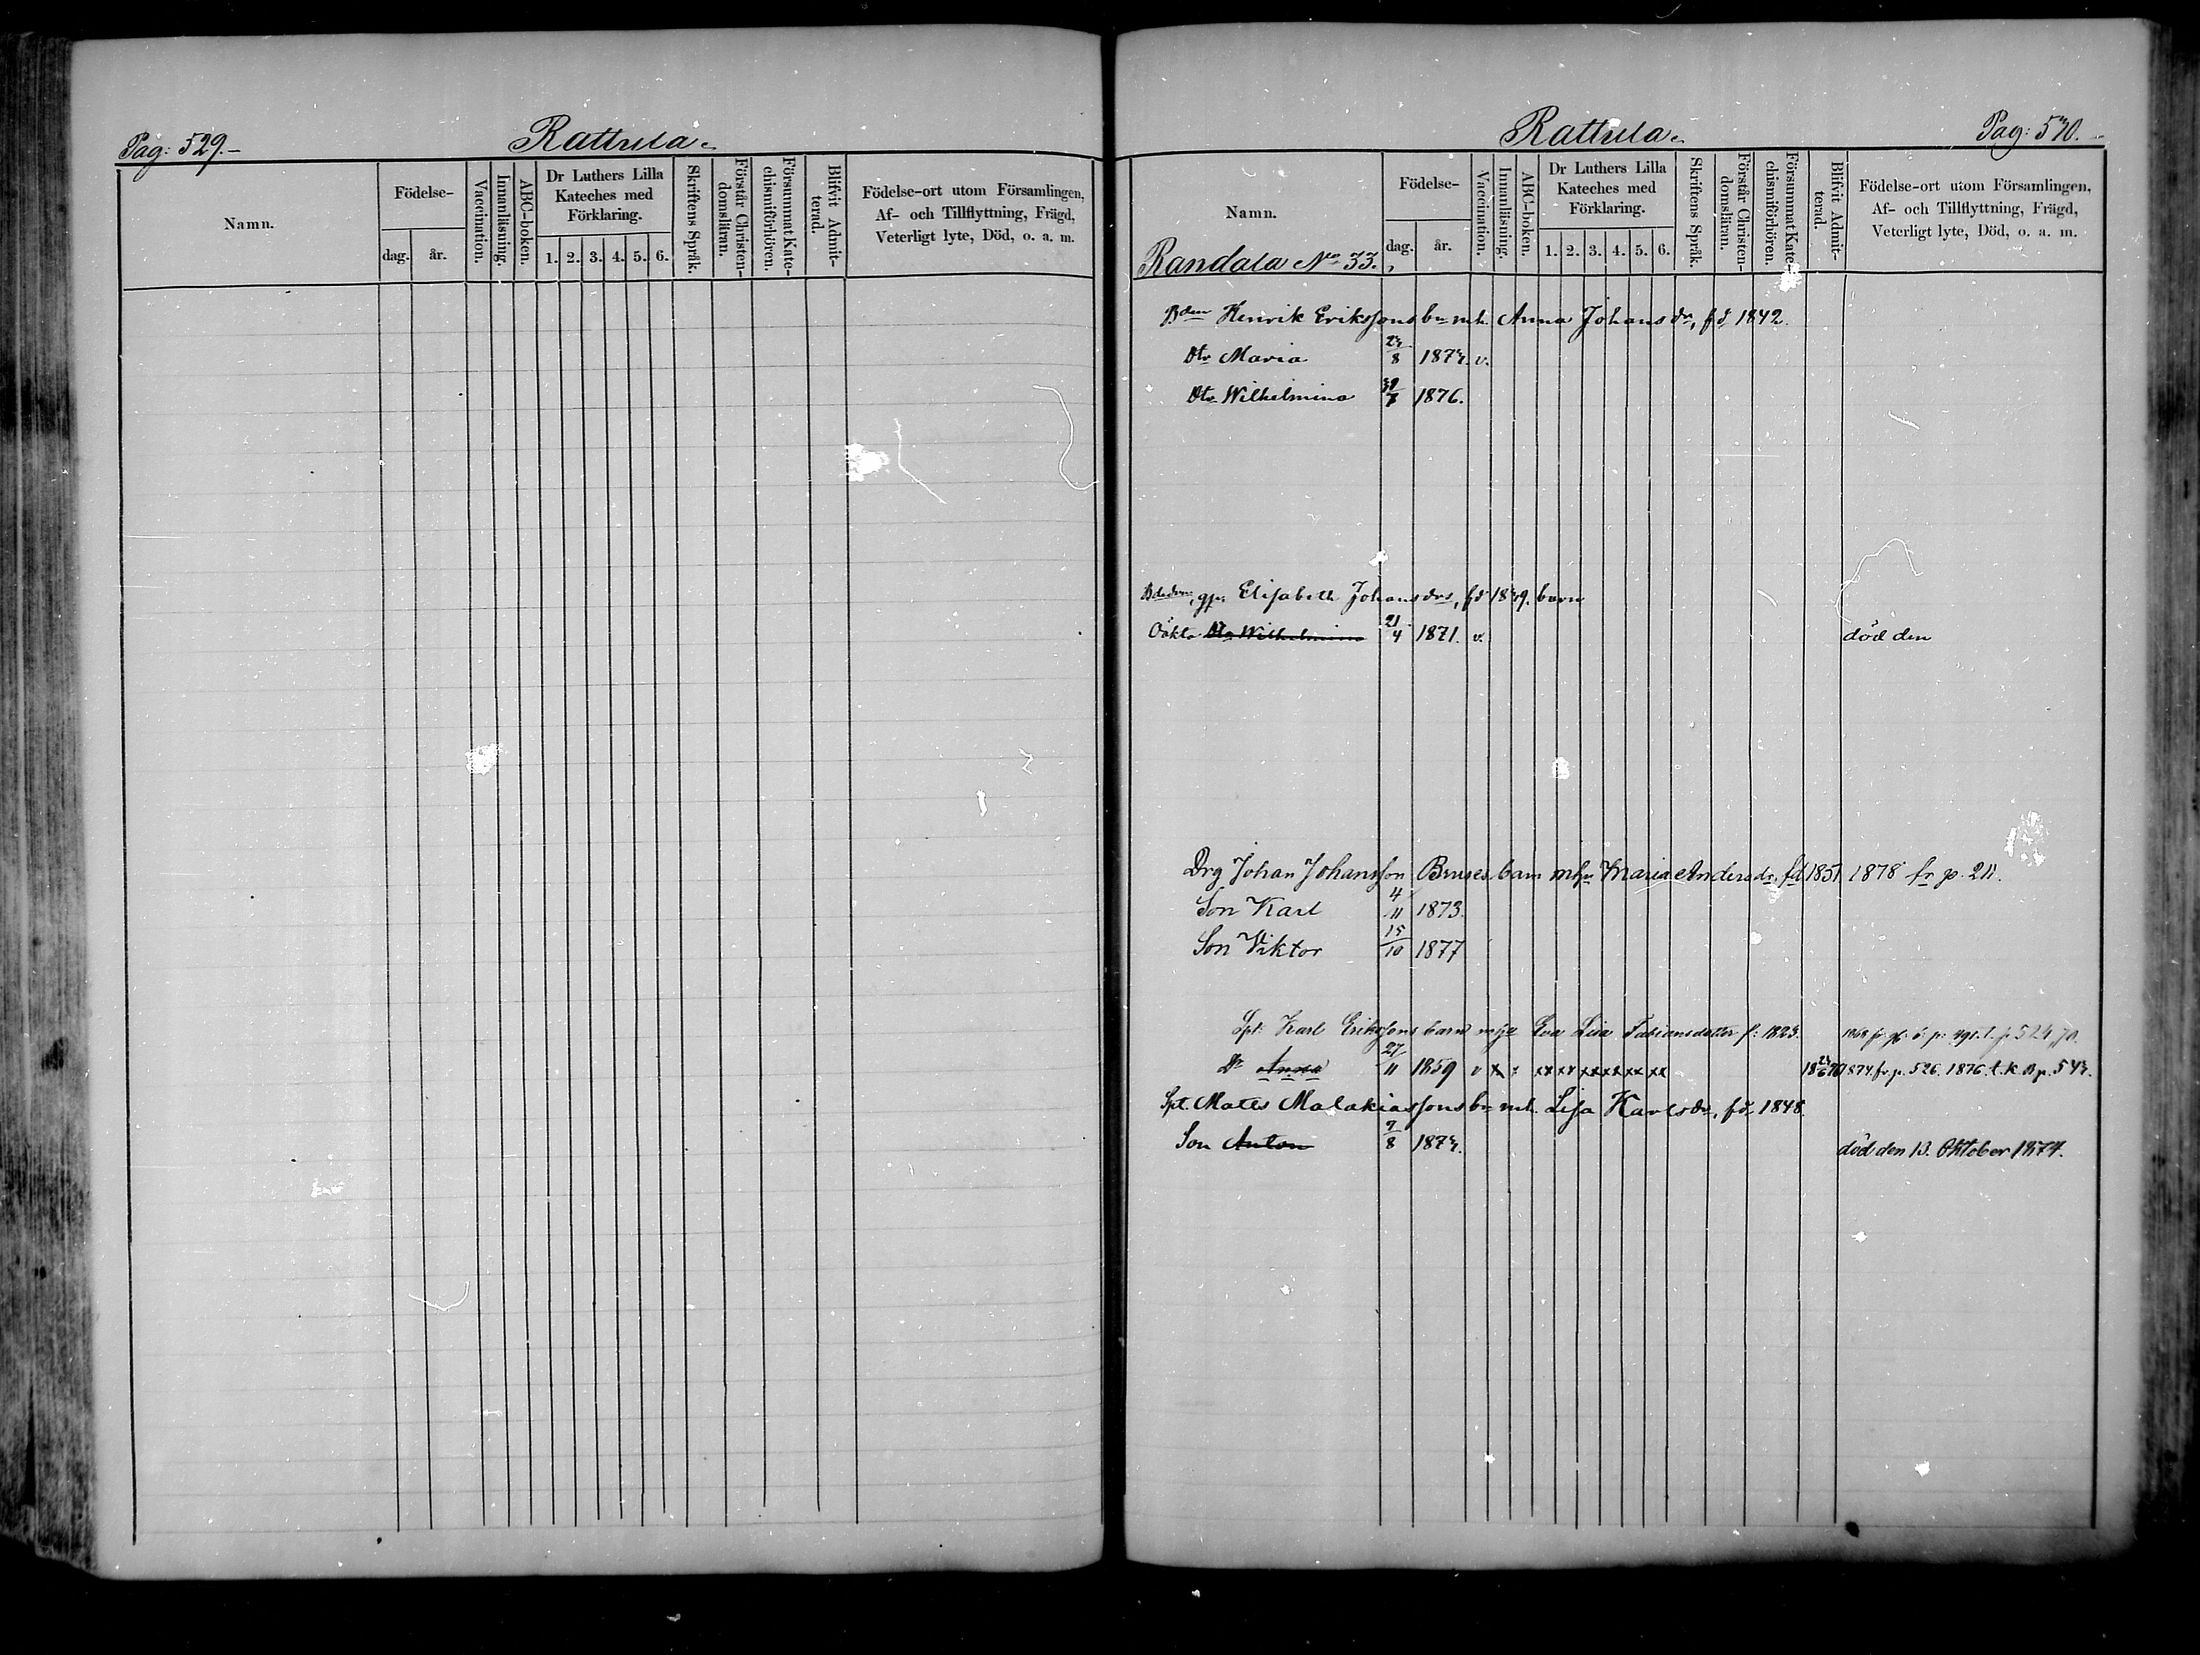 Pag: 529.
Rattula.
Namn.
Födelse-
dag.
år.
Vaccination.
Innanläsning.
ABC-boken.
Dr Luthers Lilla
Kateches med
Förklaring.
1. 2. 3. 4. 5. 6.
Skriftens Språk.
Förstår Christen-
domsläran.
Försummat Kate-
chismiförhören.
Blifvit Admit-
terad.
Födelse-ort utom Församlingen,
Af- och Tillflyttning, Frägd,
Veterligt lyte, Död, o. a. m.
Rattula.
Pag: 530.
Namn.
Födelse-
dag.
år.
Vaccination.
Innanläsning.
ABC-boken.
Dr Luthers Lilla
Kateches med
Förklaring.
1. 2. 3. 4. 5. 6.
Skriftens Språk.
Förstår Christen-
domsläran.
Försummat Kate-
chismiförhören.
Blifvit Admit-
terad.
Födelse-ort utom Församlingen,
Af- och Tillflyttning, Frägd,
Veterligt lyte, Död, o. a. m.
Randala No 33.
Bden Henrik Erikssons bn mh. Anna Johansdr, fd 1842.
Dtr Maria 23/8 1873. v.
Dtr Wilhelmina 1876.
Elisabeth Johansdrs, fd 1839. barn
Oäkta Dtr Wilhelmina 21/4 1871. v. död den
Drg Johan Johansson Bruses barn mhu Maria Andersdr, fd 1851 1878 fr p. 211.
Son Karl 4/11 1873.
Son Viktor 15/10 1877
Spt. Karl Erikssons barn Eva Lisa Fabiansdotter f: 1823.
Dr Anna 27/11 1859 v x x xx xx xx xx xx xx 1874 fr p. 526. 1876. t. K B p. 543.
Spt. Mats Malakiassons bn mh. Lisa Karlsdr, fd 1848.
Son Anton 9/8 1873. död den 13. Oktober 1874.